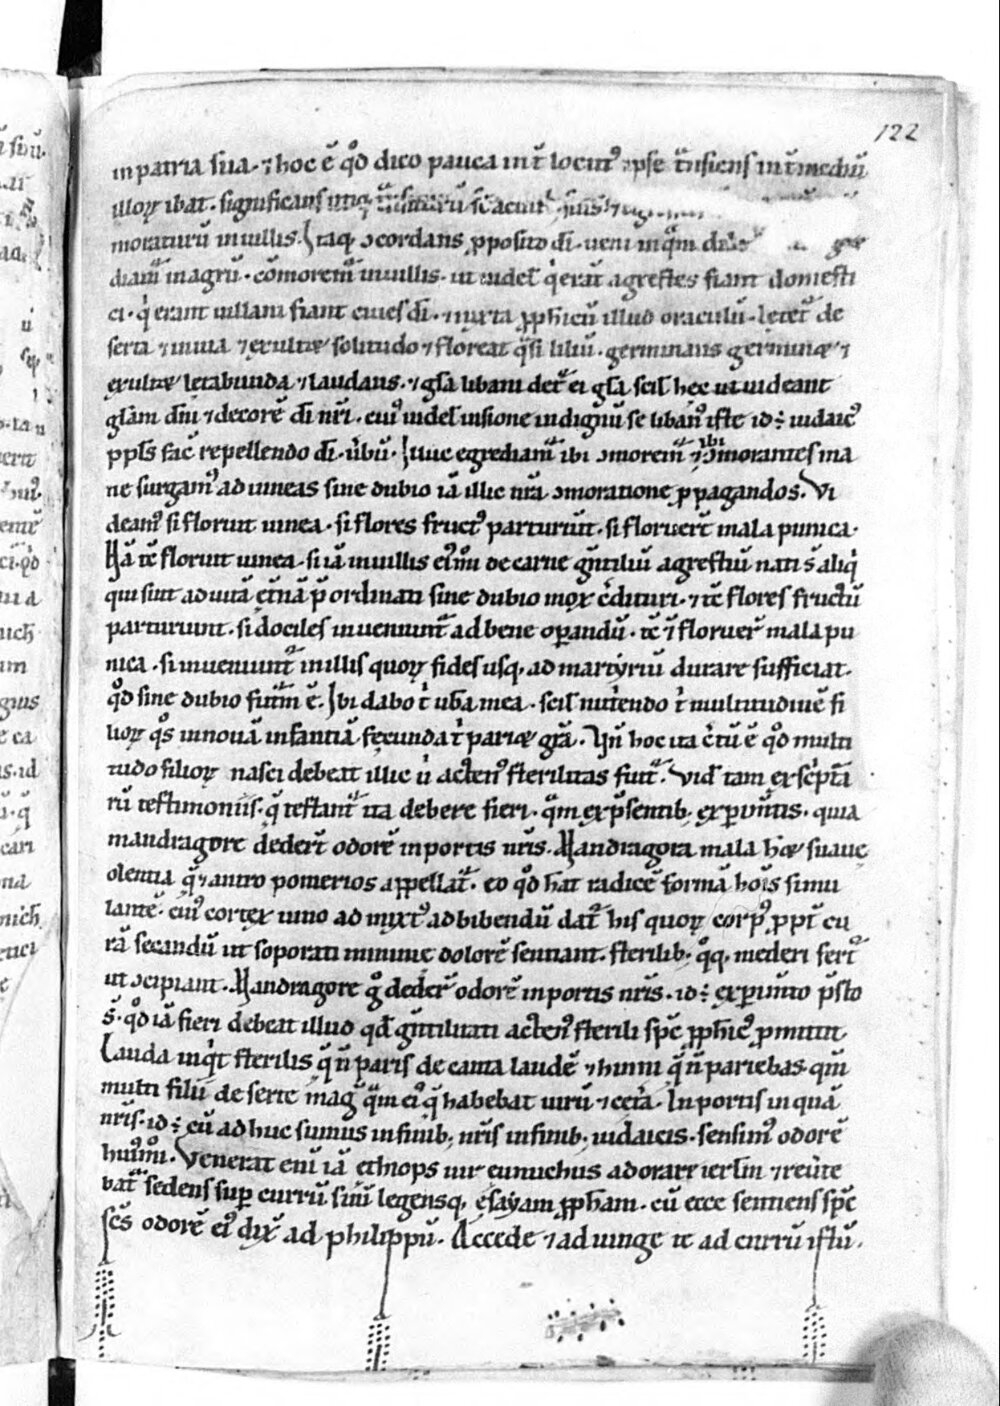 122
in patria sua· ⁊ hoc ē qd̊ dico pauca int̄ locut᷒ ipse t̃nsiens int̄ mediū
illoꝝ ibat· significans
moraturū in villis· Itaq; ꝯcordans ꝓposito di· veni inq̃m
diam̃ in agrū· cōmorem̃ in villis· ut videl̄ q̇ erant agrestes fiant domesti
ci· q̇ erant villani fiant ciues di· ⁊ iuxta ꝓph̄icū illud oraculū· letet̃ de
serta ⁊ inuia ⁊ exultet solitudo ⁊ floreat q̃si liliū· germinans germinet ⁊
exultet letabunda ⁊ laudans· ⁊ gl̄a libani dat̃ ei gl̄a scil̄ hec ut uideant
gl̄am dn̄i ⁊ decorē di nr̄i· cui᷒ videl̄ uisione indignū se liban᷒ iste id÷ iudaic᷒
ppl̄s fac̄ repellendo di· u̇bū· Huc egrediam̃ ibi ꝯmorem̃ ⁊ ibi ꝯmorantes ma
ne surgam᷒ ad uineas sine dubio iā illic nr̄a ꝯmoratione ꝓpagandos· Vi
deam᷒ si floruit uinea· si flores fruct᷒ parturiūt· si floruer̄t mala punica·
Nā tc̄ floruit uinea· si iā in villis
qui sunt ad uitā et̄nā p̄ordinati sine dubio mox c̄dituri· ⁊ tc̄ flores fructū
parturiunt· si dociles inueniunt̃ ad bene oꝑandū· tc̄ ī floruer̄ mala pu
nica· si inueniunt̃ in illis quoꝝ fides usq; ad martyriū durare sufficiat·
qd̊ sine dubio fut̃m ē· Ibi dabo t̍ ubera mea· scil̄ nut̍endo t̍ multitudinē fi
lioꝝ q̊s in nouā infantiā fecunda t̍ pariet gr̄a· Vn̄ hoc ita c̄tū ē qd̊ multi
tudo filioꝝ nasci debeat illic u̍ acten᷒ sterilitas fuit· Vid̄ tam ex sc̍ptā
rū testimoniis· q̄ testant̃ ita debere fieri· q̃m ex p̄sentib; exꝑim̄tis· quia
mandragore deder̄t odorē in portis nr̄is. Mandragora mala h̄et suaue
olentia q̄ ⁊ antro pomerios appellat̃· eo qd̊ h̄at radicē formā hoīs simu
lantē· cui᷒ cortex uino ad mixt᷒ ad bibendū dat̃ his quoꝝ corp᷒ ꝓpt̄ cu
rā secandū ut soporati minime dolorē sentiant· sterilib; q̊q; mederi fert̃
ut ꝯcipiant· Mandragore g̊ deder̄ odorē in portis nr̄is· id÷ exꝑim̄to p̄sto
s̄· qd̊ iā fieri debeat illud qd̄ gn̄tilitati acten᷒ sterili spc̄ ꝓph̄ic᷒ ꝓmittit·
Lauda inqͥt sterilis q̄ n̄ paris decanta laudē ⁊ hinni q̄ n̄ pariebas· qm̄
multi filii deserte mag̃ q̃m ei᷒ q̄ habebat uirū ⁊ cet̍a· In portis inquā
nr̄is· id÷ cū ad huc sumus in finib; nr̄is in finib; iudaicis· sensim᷒ odorē
huīm̊i· Venerat eni iā ethiops uir eunuchus adorare ierl̄m ⁊ reu̍te
bat̃ sedens suꝑ currū suū legensq; esayam ꝓph̄am· cū ecce sentiens spc̄
sc̄s odorē ei᷒ dix̄ ad philippū· Accede ⁊ ad iunge te ad currū istū·